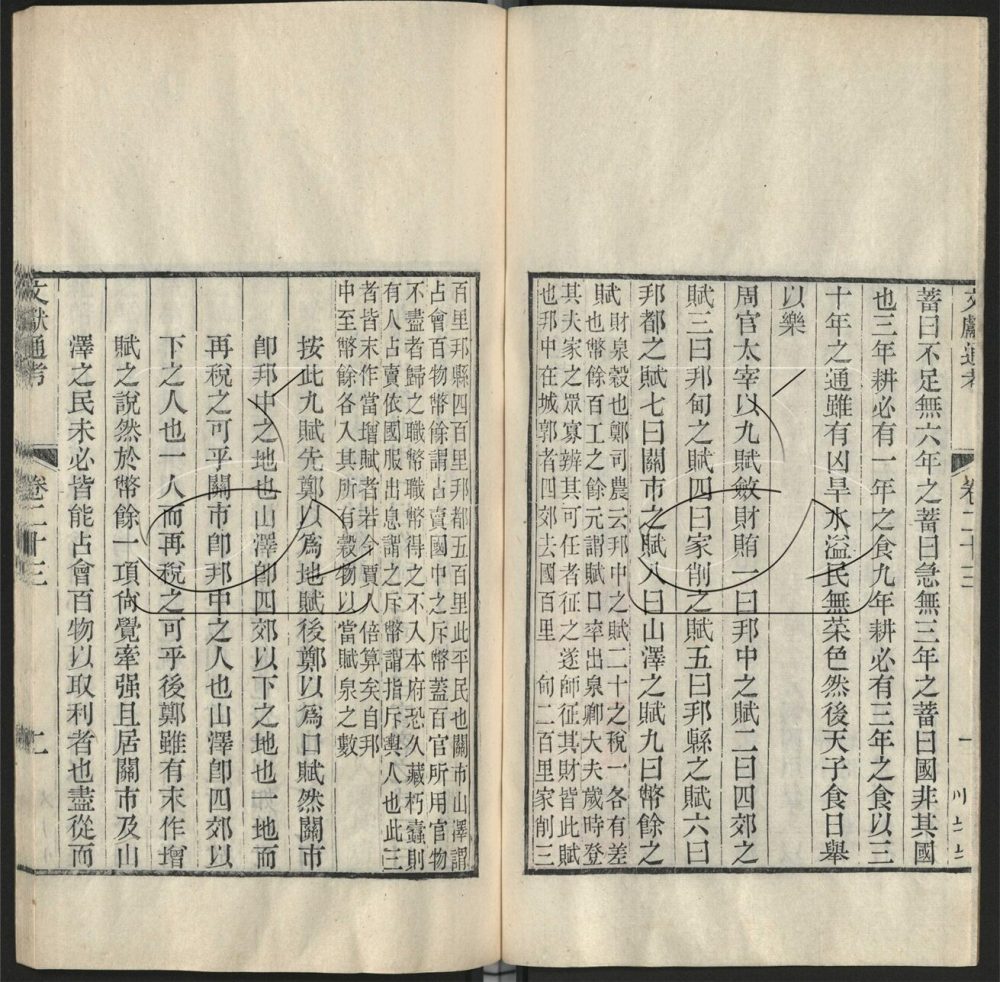 文獻通考 卷二十三 一
蓄曰不足無六年之蓄曰急無三年之蓄曰國非其國
也三年耕必有一年之食九年耕必有三年之食以三
十年之通雖有凶旱水溢民無菜色然後天子食日舉
以樂
周官太宰以九賦斂財賄一曰邦中之賦二曰四郊之
賦三曰邦甸之賦四曰家削之賦五曰邦縣之賦六曰
邦都之賦七曰關市之賦八曰山澤之賦九曰幣餘之
賦財泉穀也鄭司農云邦中之賦二十之稅一各有差
賦也幣餘百工之餘元謂賦口率出泉卿大夫歲時登
其夫家之眾寡辨其可任者征之遂師征其財皆此賦
也邦中在城郭者四郊去國百里甸二百里家削三
百里邦縣四百里邦都五百里此平民也關市山澤謂
占會百物幣餘謂占賣國中之斥幣蓋百官所用官物
不盡者歸之職幣職幣得之不入本府恐久藏朽蠹則
有人占賣依國服出息謂之斥幣謂指斥與人也此三
者皆末作當增賦者若今賈人倍算矣自邦
中至幣餘各入其所有穀物以當賦泉之數
按此九賦先鄭以爲地賦後鄭以爲口賦然關市
卽邦中之地也山澤卽四郊以下之地也一地而
再稅之可乎關市卽邦中之人也山澤卽四郊以
下之人也一人而再稅之可乎後鄭雖有末作增
賦之說然於幣餘一項尙覺牽强且居關市及山
澤之民未必皆能占會百物以取利者也盡從而
文獻通考 卷二十三 二